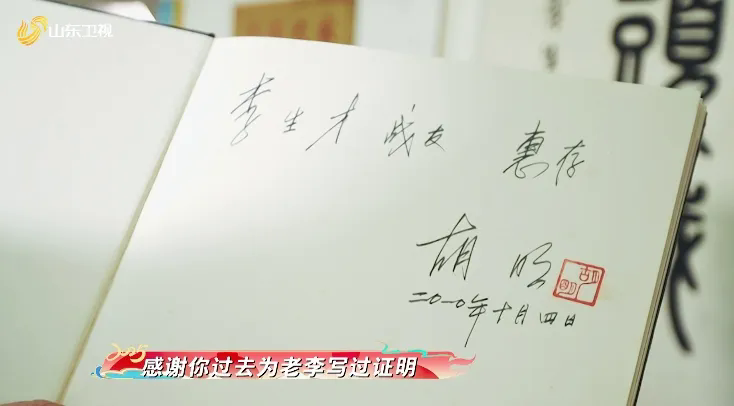 山东卫视
李生才 战友 惠存
胡明
二〇一〇年十月四日
2025
感谢你过去为老李写过证明